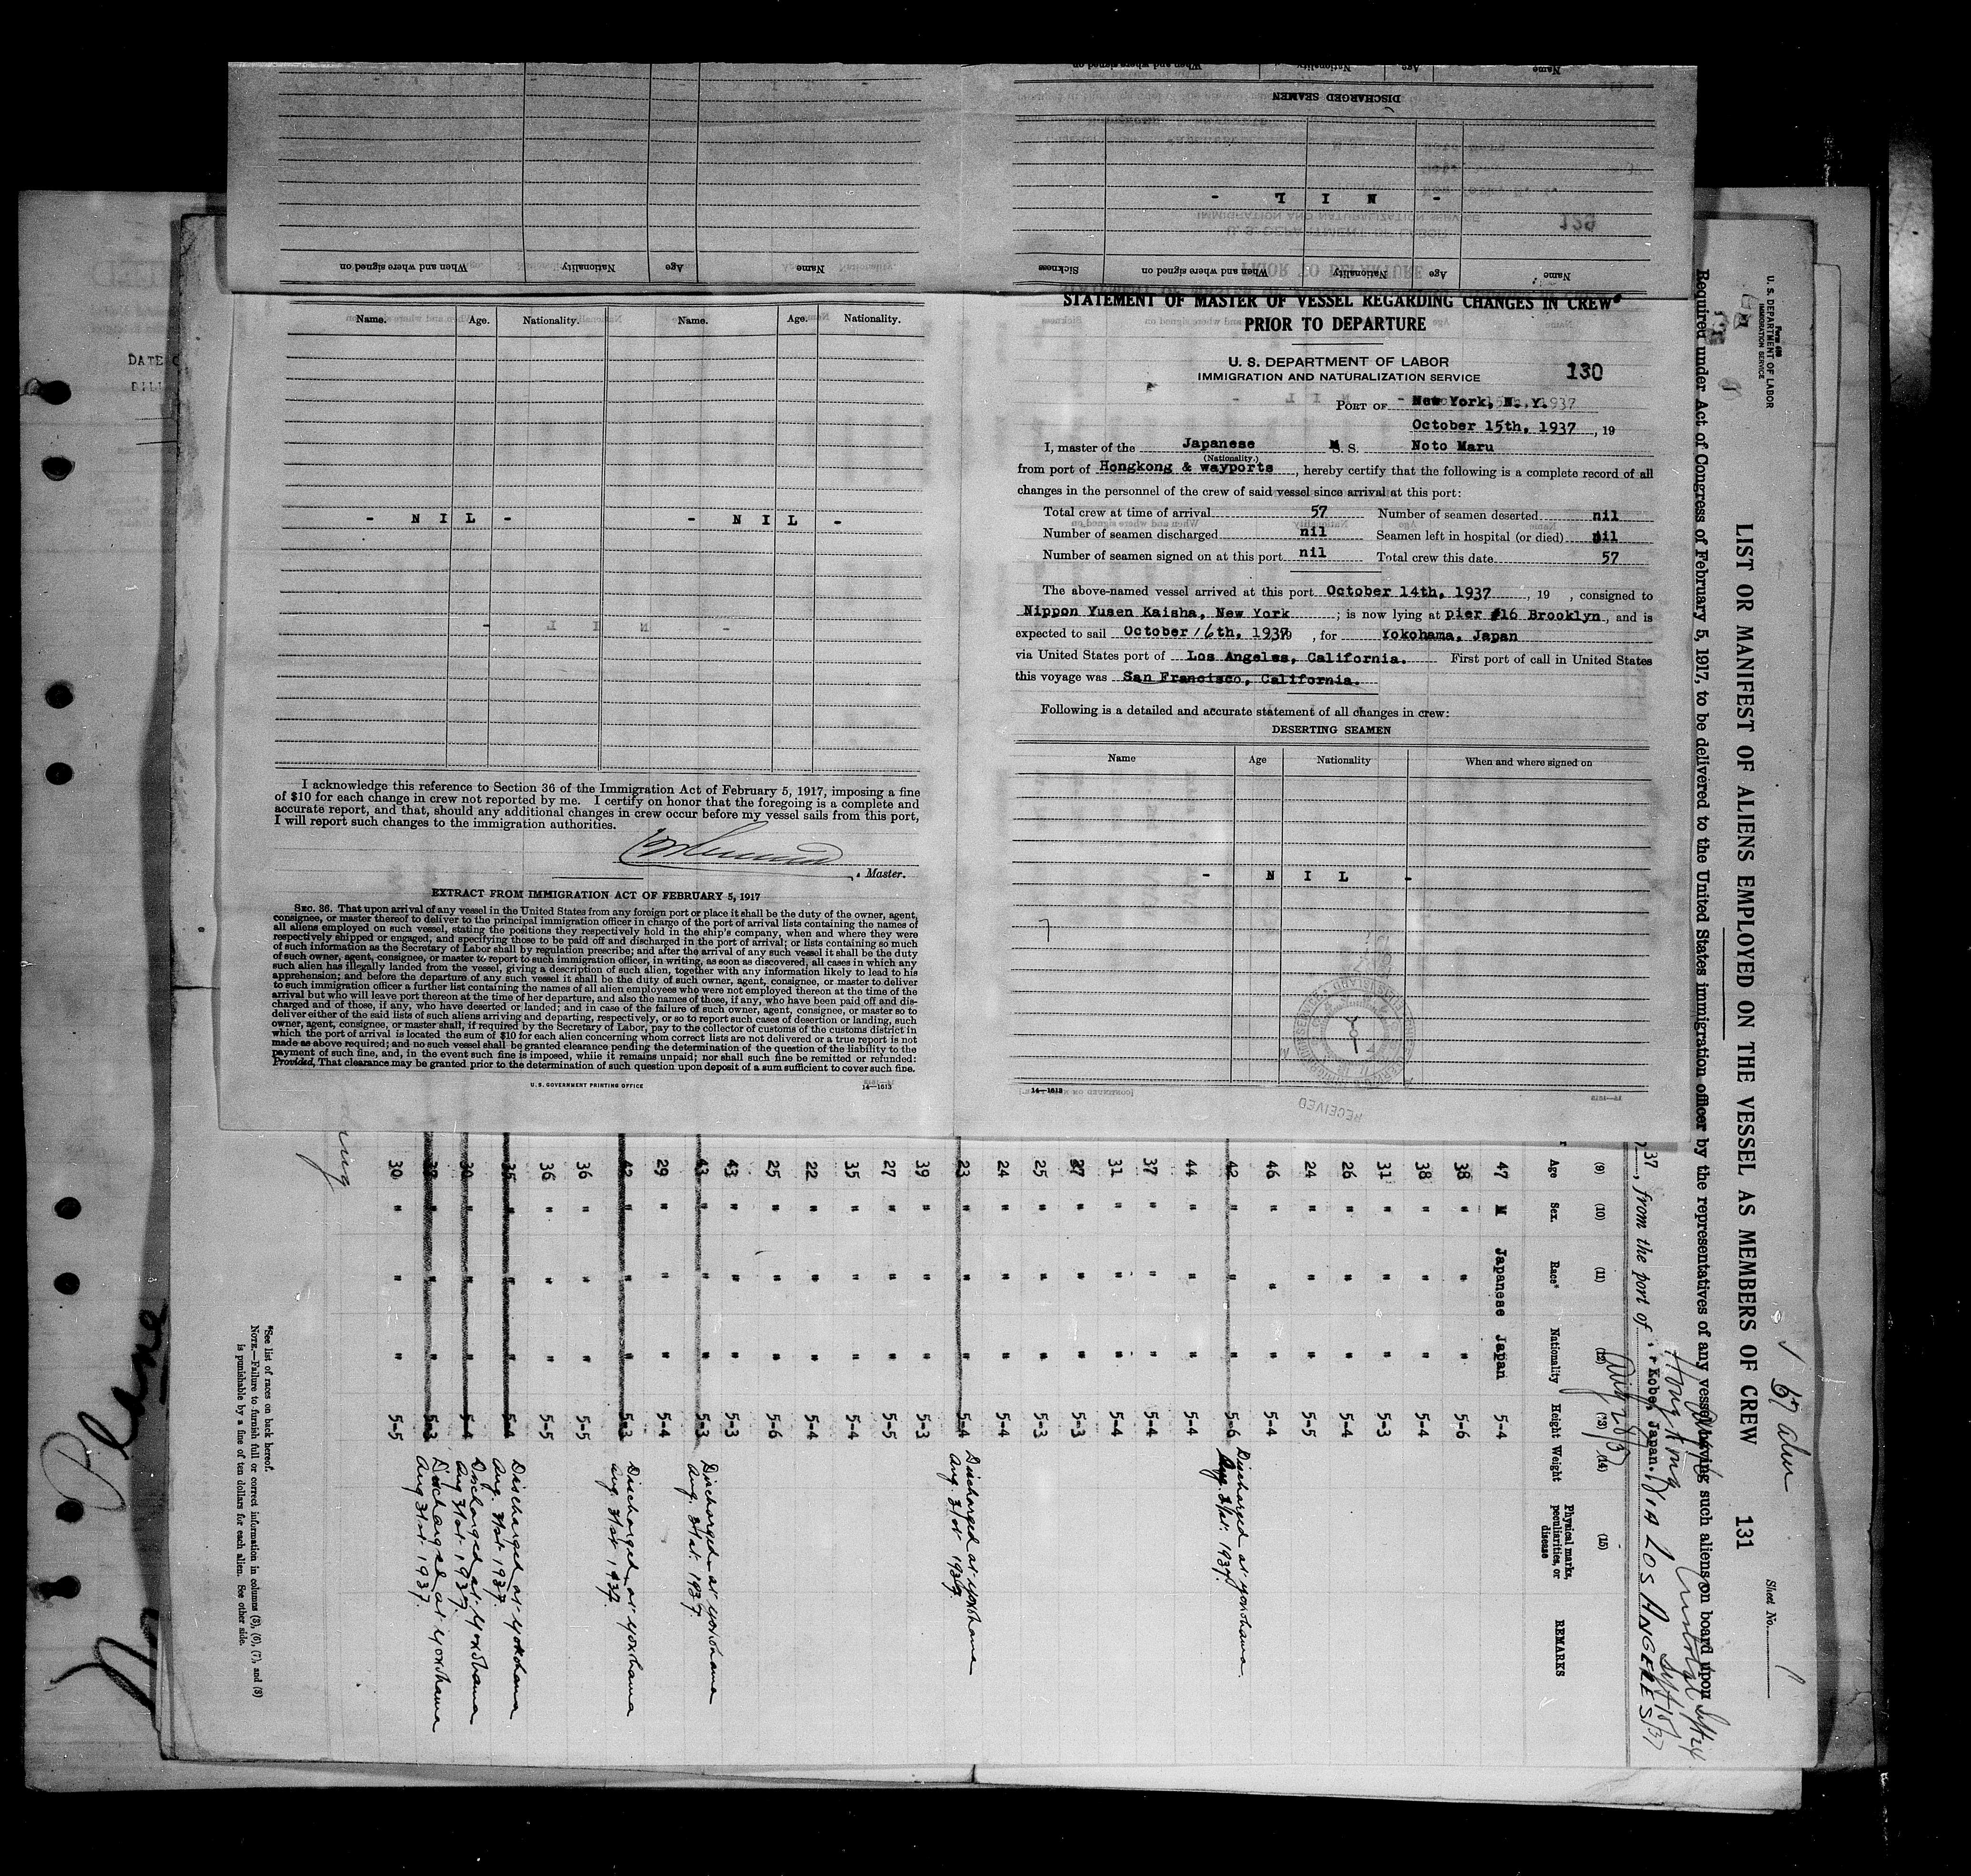 Name.
Age.
Nationality.
Name.
Age.
Nationality.
- N I L -
- N I L -
I acknowledge this reference to Section 36 of the Immigration Act of February 5, 1917, imposing a fine
of $10 for each change in crew not reported by me. I certify on honor that the foregoing is a complete and
accurate report, and that, should any additional changes in crew occur before my vessel sails from this port,
I will report such changes to the immigration authorities.
, Master.
EXTRACT FROM IMMIGRATION ACT OF FEBRUARY 5, 1917
SEC. 36. That upon arrival of any vessel in the United States from any foreign port or place it shall be the duty of the owner, agent,
consignee, or master thereof to deliver to the principal immigration officer in charge of the port of arrival lists containing the names of
all aliens employed on such vessel, stating the positions they respectively hold in the ship's company, when and where they were
respectively shipped or engaged, and specifying those to be paid off and discharged in the port of arrival; or lists containing so much
of such information as the Secretary of Labor shall by regulation prescribe; and after the arrival of any such vessel it shall be the duty
of such owner, agent, consignee, or master to report to such immigration officer, in writing, as soon as discovered, all cases in which any
such alien has illegally landed from the vessel, giving a description of such alien, together with any information likely to lead to his
apprehension; and before the departure of any such vessel it shall be the duty of such owner, agent, consignee, or master to deliver
to such immigration officer a further list containing the names of all alien employees who were not employed thereon at the time of the
arrival but who will leave port thereon at the time of her departure, and also the names of those, if any, who have been paid off and dis-
charged and of those, if any, who have deserted or landed; and in case of the failure of such owner, agent, consignee, or master so to
deliver either of the said lists of such aliens arriving and departing, respectively, or so to report such cases of desertion or landing, such
owner, agent, consignee, or master shall, if required by the Secretary of Labor, pay to the collector of customs of the customs district in
which the port of arrival is located the sum of $10 for each alien concerning whom correct lists are not delivered or a true report is not
made as above required; and no such vessel shall be granted clearance pending the determination of the question of the liability to the
payment of such fine, and, in the event such fine is imposed, while it remains unpaid; nor shall such fine be remitted or refunded:
Provided, That clearance may be granted prior to the determination of such question upon deposit of a sum sufficient to cover such fine.
U. S. GOVERNMENT PRINTING OFFICE
14—1613
DISCHARGED SEAMEN
- N I L -
Name
Age
Nationality
When and where signed on
Sickness
Name
Age
Nationality
When and where signed on
STATEMENT OF MASTER OF VESSEL REGARDING CHANGES IN CREW
PRIOR TO DEPARTURE
U. S. DEPARTMENT OF LABOR
IMMIGRATION AND NATURALIZATION SERVICE
130
PORT OF New York, N. Y.
October 15th, 1937, 19
I, master of the Japanese M. S. Noto Maru
(Nationality.)
from port of Hongkong & wayports, hereby certify that the following is a complete record of all
changes in the personnel of the crew of said vessel since arrival at this port:
Total crew at time of arrival 57 Number of seamen deserted nil
Number of seamen discharged nil Seamen left in hospital (or died) nil
Number of seamen signed on at this port nil Total crew this date 57
The above-named vessel arrived at this port October 14th, 1937, 19 , consigned to
Nippon Yusen Kaisha, New York; is now lying at pier #16 Brooklyn, and is
expected to sail October 16th, 1937, for Yokohama, Japan
via United States port of Los Angeles, California. First port of call in United States
this voyage was San Francisco, California.
Following is a detailed and accurate statement of all changes in crew:
DESERTING SEAMEN
Name
Age
Nationality
When and where signed on
- N I L -
7
14—1613
RECEIVED
DATE
BILL
U. S. DEPARTMENT OF LABOR
IMMIGRATION SERVICE
Sheet No. 1
LIST OR MANIFEST OF ALIENS EMPLOYED ON THE VESSEL AS MEMBERS OF CREW 131
Required under Act of Congress of February 5, 1917, to be delivered to the United States immigration officer by the representatives of any vessel having such aliens on board upon
37, from the port of Kobe, Japan. VIA LOS ANGELES
Hong Kong
(9) (10) (11) (12) (13) (14) (15)
Age Sex. Race* Nationality Height Weight Physical marks, peculiarities, or disease REMARKS
47 M Japanese Japan 5-4
38 " " " 5-6
38 " " " 5-4
31 " " " 5-3
26 " " " 5-4
24 " " " 5-5
46 " " " 5-4
42 " " " 5-6 Discharged at Yokohama Aug. 31st. 1937.
44 " " " 5-4
37 " " " 5-4
31 " " " 5-4
27 " " " 5-3
25 " " " 5-3
24 " " " 5-4
23 " " " 5-4 Discharged at Yokohama Aug. 31st. 1937.
39 " " " 5-3
27 " " " 5-5
35 " " " 5-4
22 " " " 5-4
25 " " " 5-6
43 " " " 5-3
43 " " " 5-3 Discharged at Yokohama Aug. 31st. 1937
29 " " " 5-4
42 " " " 5-3 Discharged at Yokohama Aug. 31st. 1937
36 " " " 5-5
36 " " " 5-5
35 " " " 5-4 Discharged at Yokohama Aug. 31st. 1937
30 " " " 5-4 Discharged at Yokohama Aug. 31st. 1937.
" " " 5-3 Discharged at Yokohama Aug 31st. 1937.
30 " " " 5-5
*See list of races on back hereof.
NOTE.—Failure to furnish full or correct information in columns (3), (6), (7), and (8)
is punishable by a fine of ten dollars for each alien. See other side.